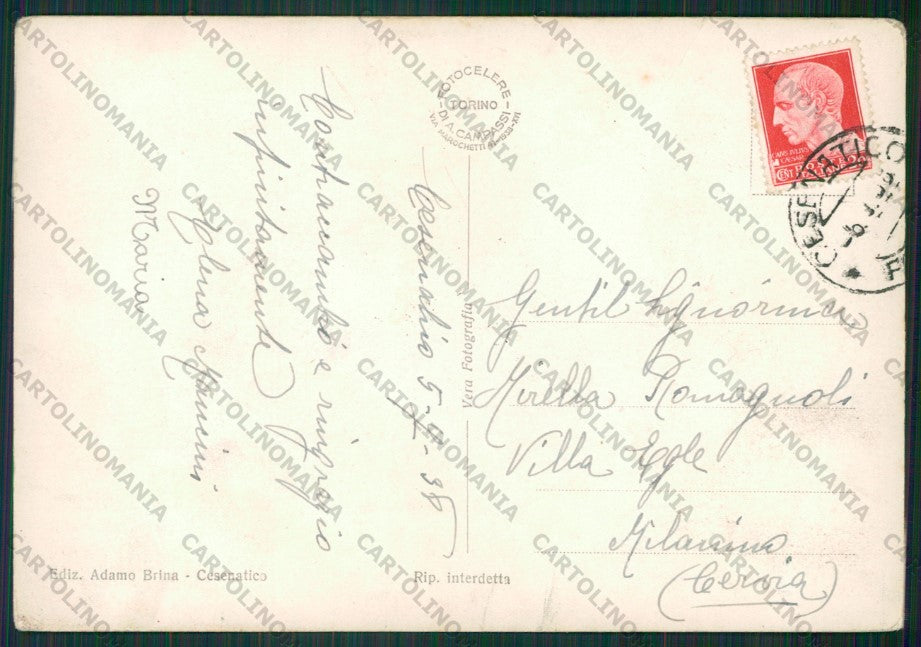 FOTOCELERE
TORINO
DI A. CAMPASSI
VIA MAROCCHETTI 41-1938-XVI
CESENATICO
Cesenatico 5-9-38
Contraccambio e ringrazio
infinitamente
Elena Mancini
Maria
Vera Fotografia
Gentil Signorina
Mirella Romagnoli
Villa Egle
Milarimo
(Cervia)
Ediz. Adamo Brina - Cesenatico
Rip. interdetta
CARTOLINOMANIA